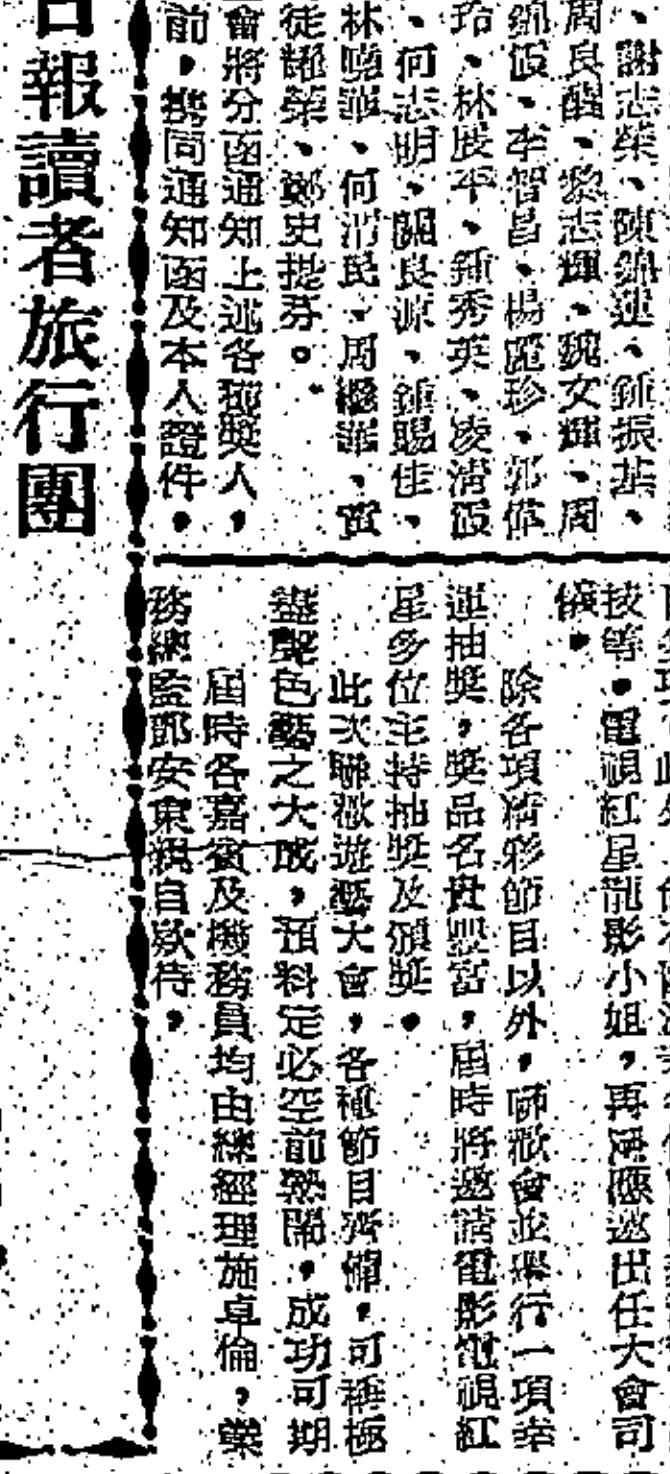 、謝志榮、陳錦蓮、鍾振基、
周良醒、黎志輝、魏女輝、周
錦飯、李智昌、楊麗珍、郭偉
玲、林展平、鍾秀英、凌清飯
、何志明、關良源、鍾賜佳、
林曉華、何渭民、周繼華、
徒耀榮、鄭史提芬。
會將分函通知上述各獲獎人,
前,携同通知函及本人證件,
技等。電視紅星龍影小姐,再度應邀出任大會司
儀。
除各項精彩節目以外,聯歡會並舉行一項幸
運抽獎,獎品名貴豐富,屆時將邀請電影電視紅
星多位主持抽獎及頒獎。
此次聯歡遊藝大會,各種節目齊備,可稱極
盡聲色藝之大成,預料定必空前熱鬧,成功可期
屆時各嘉賓及機務員均由總經理施卓倫,業
務總監鄧安東親自欵待。
日報讀者旅行團